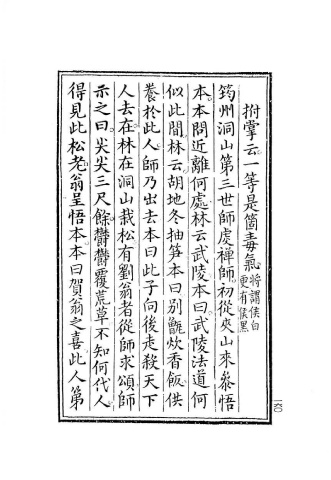 拊掌云一等是箇毒氣將謂侯白更有侯黑
筠州洞山第三世師虔禪師初從夾山來叅悟
本本問近離何處林云武陵本曰武陵法道何
似此間林云胡地冬抽笋本曰別甑炊香飯供
養於此人師乃出去本曰此子向後走殺天下
人去在林在洞山栽松有劉翁者從師求頌師
示之曰尖尖三尺餘鬱鬱覆荒草不知何代人
得見此松老翁呈悟本本曰賀翁之喜此人第
一六〇